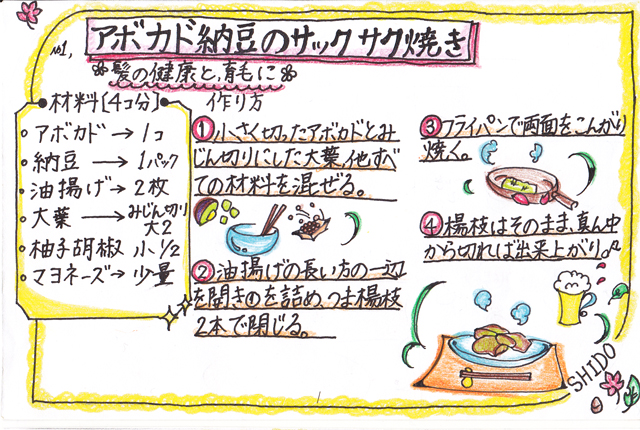 No1,
アボカド納豆のサックサク焼き
髪の健康と,育毛に
材料[4コ分]
アボカド→1コ
納豆→1パック
油揚げ→2枚
大葉→みじん切り大2
柚子胡椒 小1/2
マヨネーズ→少量
作り方
①小さく切ったアボカドとみ
じん切りにした大葉,他すべ
ての材料を混ぜる。
②油揚げの長い方の一辺
を開き①を詰め,つま楊枝
2本で閉じる。
③フライパンで両面をこんがり
焼く。
④楊枝はそのまま,真ん中
から切れば出来上がり。
SHIDO